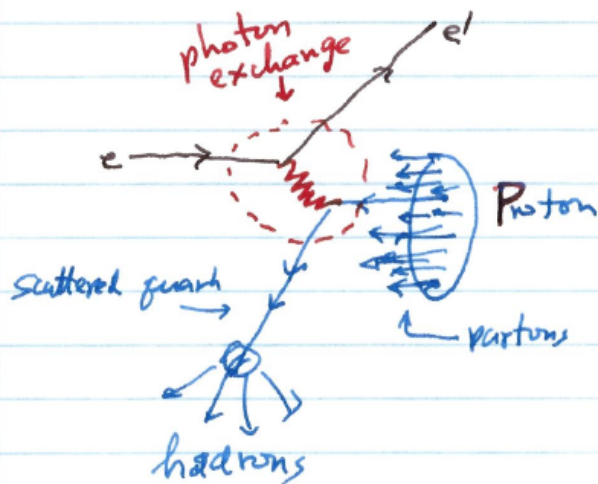 photon
exchange
e'
e
Proton
scattered quark
partons
hadrons